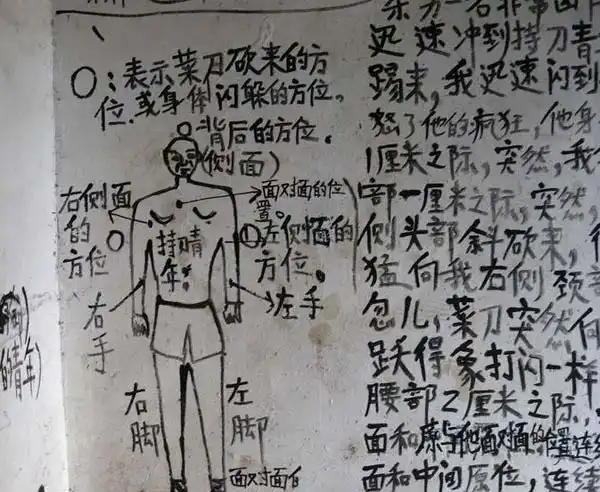 ○：表示菜刀砍来的方
位.或身体闪躲的方位。
背后的方位.
(侧面)
右侧面
的
方位
面对面的位
置。
左侧面的
方位。
右手
左手
右脚
左脚
面对面
迅速冲到持刀青
踢来，我迅速闪到
怒了他的疯狂，他身
1厘米之际，突然，我
部一厘米之际，突然，
侧头部斜砍来，
猛向我右侧颈部
忽儿，菜刀突然向
跃得象打闪一样
腰部2厘米之际，
面和
面和中间原位，连续
的青年)